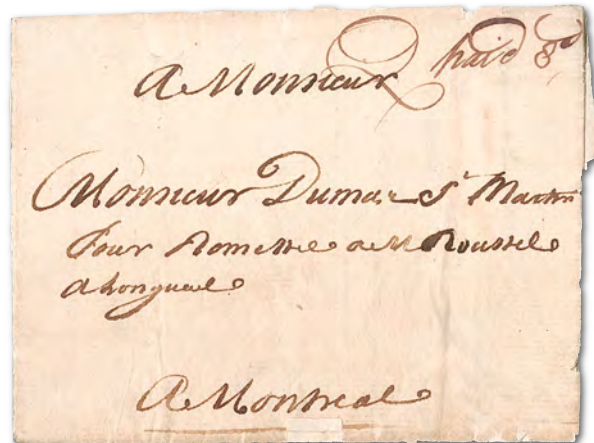 A Monsieur paid 8d
Monsieur Dumas St Martin
Pour Remettre a M Roussel
A Longueuil
A Montreal